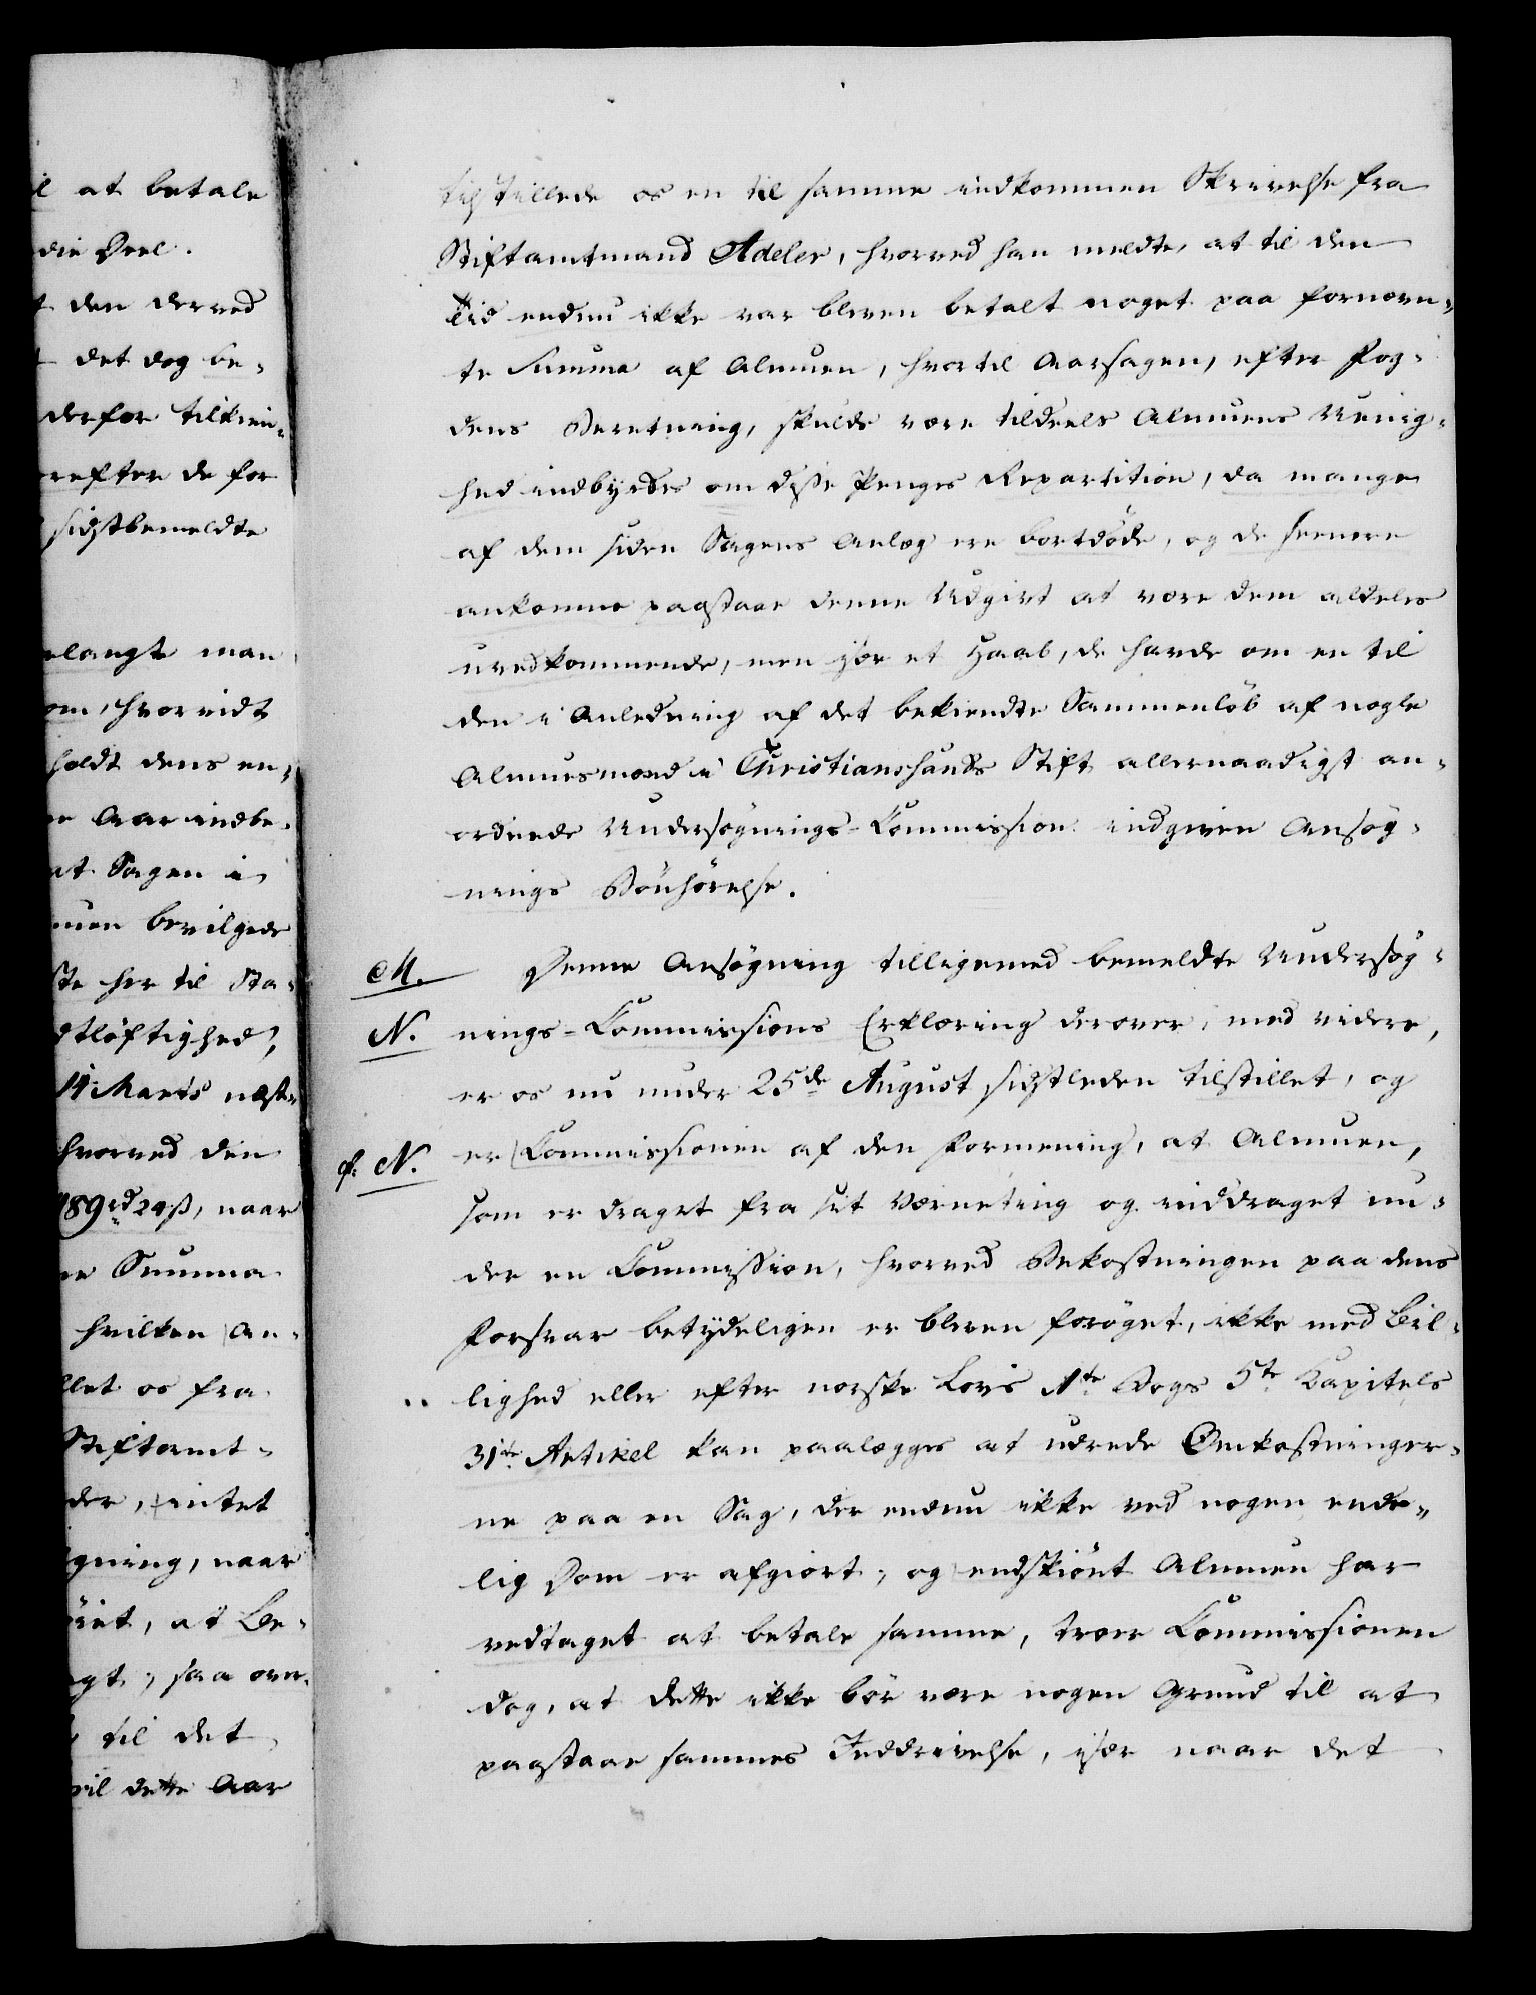 il at betale
die Deel.
t den derved
t det dog be-
derfor tilkien-
refter de for
sidstbemeldte
langt man
om, hvorvidt
holdt dens en-
re Aar indbe-
at Sagen i
muen bevilgede
ste her til Sta-
dtløftighed,
14 Marts næst-
hvorved den
89 rd 24 ß, naar
ne Summa
hvilken An-
llet os fra
Stiftamt-
der, intet
gning, naar
øret, at Be-
gt; saa over-
til det
ril dette Aar
tilstillede os en til samme indkommen Skrivelse fra
Stiftamtmand Adeler, hvorved han meldte, at til den
Tid endnu ikke var bleven betalt noget paa fornævn-
te Summa af Almuen, hvortil Aarsagen, efter Fog-
dens Beretning, skulde være tildeels Almuens Uenig-
hed indbyrdes om disse Penges Repartition, da mange
af dem siden Sagens Anlæg ere bortdöde, og de seenere
ankomne paastaae denne Udgivt at være dem aldeles
uvedkommende, men især et Haab, de havde om en til
den i Anledning af det bekiendte Sammenlöb af nogle
Almuesmænd i Christianshands Stift allernaadigst an-
ordnede Undersögnings-Commission indgiven Ansög-
nings Bönhörelse.
M. Denne Ansögning tilligemed bemeldte Undersög-
N. nings-Commissions Erklæring derover, med videre,
er os nu under 25de August sidstleden tilstillet, og
cf. N. er Commissionen af den Formening, at Almuen,
som er draget fra sit Værneting og inddraget un-
der en Commission, hvorved Bekostningen paa dens
Forsvar betydeligen er bleven forøget, ikke med Bil-
lighed eller efter norske Lovs 1te Bogs 5te Kapitels
31te Artikel kan paalægges at udrede Omkostninger-
ne paa en Sag, der endnu ikke ved nogen ende-
lig Dom er afgiort; og endskiönt Almuen har
vedtaget at betale samme, troer Commissionen
dog, at dette ikke bör være nogen Grund til at
paastaae sammes Inddrivelse, især naar det